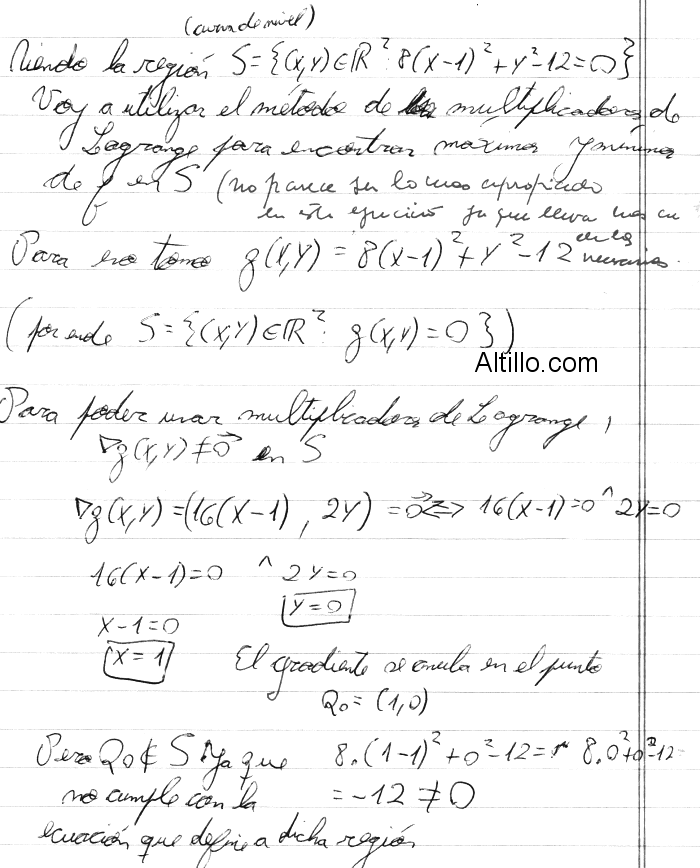 (curva de nivel)
Siendo la región S={(x,y)∈ℝ²: 8(x-1)²+y²-12=0}
Voy a utilizar el método de los multiplicadores de
Lagrange para encontrar máximos y mínimos
de f en S (no parece ser lo mas apropiado
en este ejercicio ya que lleva mas cu
de las
Para eso tomo g(x,y) = 8(x-1)²+y²-12 necesarias.
(por ende S={(x,y)∈ℝ²: g(x,y)=0})
Altillo.com
Para poder usar multiplicadores de Lagrange,
∇g(x,y)≠0⃗ en S
∇g(x,y)=(16(x-1), 2y) =0⃗ <=> 16(x-1)=0 ^ 2y=0
16(x-1)=0 ^ 2y=0
y=0
x-1=0
x=1 El gradiente se anula en el punto
Q₀=(1,0)
Pero Q₀∉S ya que 8.(1-1)²+0²-12= 8.0²+0²-12
no cumple con la =-12≠0
ecuación que define a dicha región